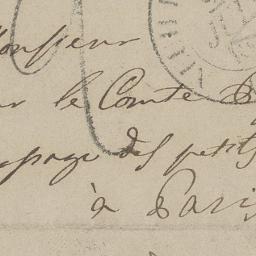 Monsieur
le Comte
des petits
à Paris